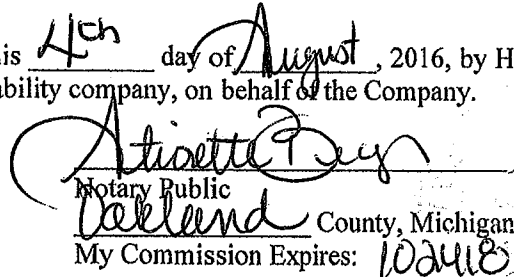 is 4th day of August, 2016, by H
ability company, on behalf of the Company.
Notary Public
Oakland County, Michigan
My Commission Expires: 102418